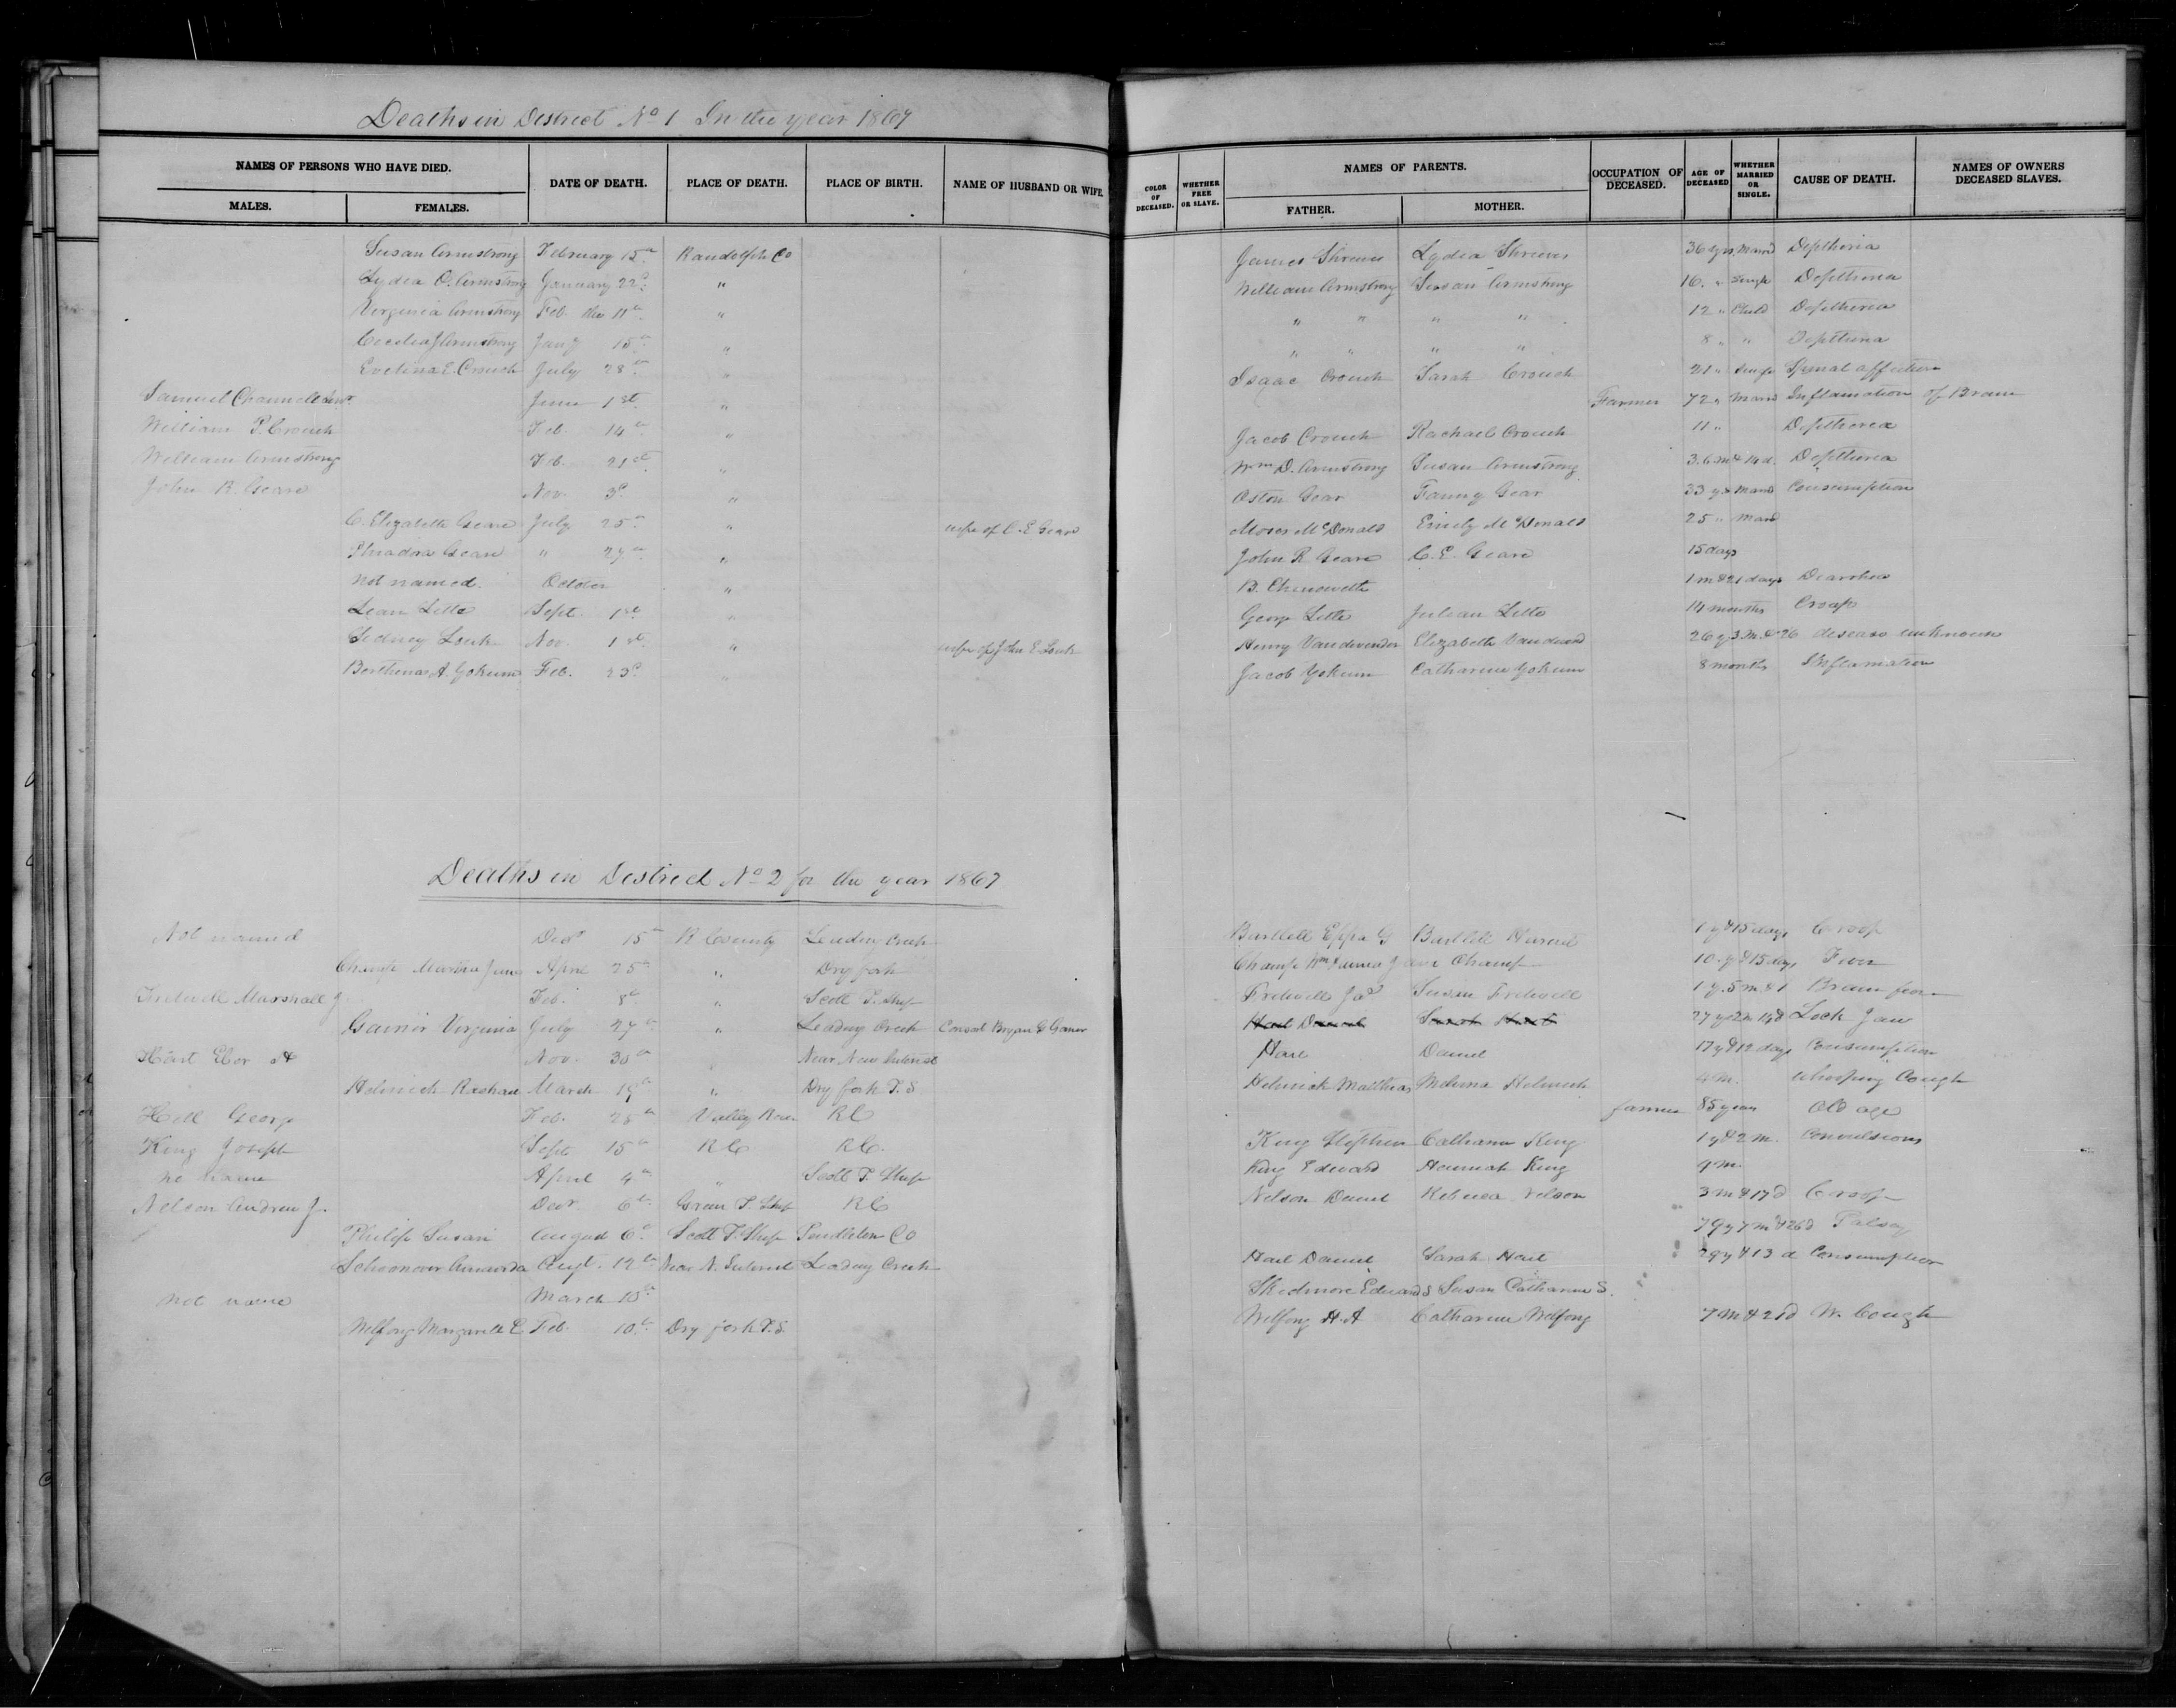 Deaths in District No 1 In the year 1867
NAMES OF PERSONS WHO HAVE DIED. DATE OF DEATH. PLACE OF DEATH. PLACE OF BIRTH. NAME OF HUSBAND OR WIFE. COLOR OF DECEASED. WHETHER FREE OR SLAVE. NAMES OF PARENTS. OCCUPATION OF DECEASED. AGE OF DECEASED WHETHER MARRIED OR SINGLE. CAUSE OF DEATH. NAMES OF OWNERS DECEASED SLAVES.
MALES. FEMALES. FATHER. MOTHER.
Susan Armstrong February 15th Randolph Co James Shreves Lydia Shreves 36 yrs Marrd Deptheria
Lydia O. Armstrong January 22d " William Armstrong Susan Armstrong 16 " Single Deptherea
Verginia Armstrong Feb. the 11th " " " " " 12 " Child Deptheria
Cecilia J Armstrong Jany 15th " " " " " 8 " " Depttheria
Evelina E. Crouch July 28th " Isaac Crouch Sarah Crouch 21 " Single Spinal affection
Samuel Channell Senr. June 1st " Farmer 72 " Marrd Inflamation of Brain
William P. Crouch Feb. 14th " Jacob Crouch Rachael Crouch 11 " Deptherea
William Armstrong Feb. 21st " Wm D. Armstrong Susan Armstrong 3. 6 m & 14 d. Deptherea
John R. Geare Nov. 3d " Oston Gear Fanny Gear 33 yrs Marrd Consumption
C. Elizabeth Geare July 25th " wife of C. E Geare Moses McDonald Emily McDonald 25 " Mard
Thiadora Geare " 27th " John R Geare C. E. Geare 15 days
not named. October " B. Chenoweth 1 m & 21 days Diarrhea
Lean Lette Sept. 1st " George Lette Julian Lette 14 months Croap
Sidney Louk Nov. 1st " wife of John E Louk Henry Vandevender Elizabeth Vandevend 26 y 3 m. & 26 disease unknown
Berthena A. Yokum Feb. 23d " Jacob Yokum Catharine Yokum 8 months Inflamation
Deaths in District No 2 for the year 1867
Not named Decr 15th R County Leading Creek Bartlett Eppa G Bartlett 1 y & 15 days Croop
Champ Martha Jane April 25th " Dry fork Champ Wm Champ 10 y & 15 days Fever
Fretwell Marshall J Feb. 8th " Scott T. Ship Fretwell Jas Susan Fretwell 1 y. 5 m. & 1 Brain fever
Gainor Verginia July 27th " Leading Creek Consort Bryan G Gainer Hart Daniel Sarah Hart 27 y 2 m 19 d Lock Jaw
Hart Elor A Nov. 30th " Near New Interest Hart Daniel 17 y & 12 days Consumption
Helmick Rachael March 19th " Dry fork T. S Helmick Matthias Melvina Helmick 4 m. Whooping Cough
Hill George Feb. 28th Valley River RC farmer 85 years Old age
King Joseph Sept 15th RC RC. King Stephen Catharine King 1 y & 2 m. Convulsions
no name April 4th " Scott T. Ship King Edward Hannah King 9 m.
Nelson Andrew J. Decr 6th Green T. Ship RC Nelson Daniel Rebecca Nelson 3 m & 17 d Croop
Philips Susan August 6th Scott T. Ship Pendleton Co 79 y 7 m & 26 d Palsey
Schoonover Amanda Augt. 12th Near N. Interest Leading Creek Hart Daniel Sarah Hart 29 y & 13 d Consumption
not name March 15th Skidmore Edward S Susan Catharine S.
Wilfong Margarett E. Feb. 10th Dry fork T. S. Wilfong H. A Catharine Wilfong 7 m & 21 d W. Cough